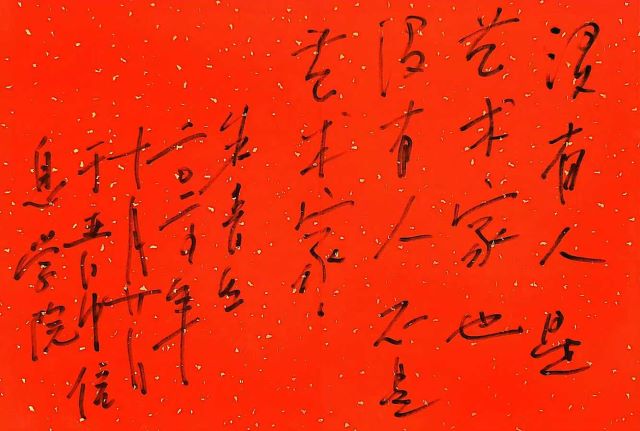 没有人是
艺术家也
没有人不是
艺术家。
朱青生
二〇二〇年
十月廿日
于吾印信
息学院